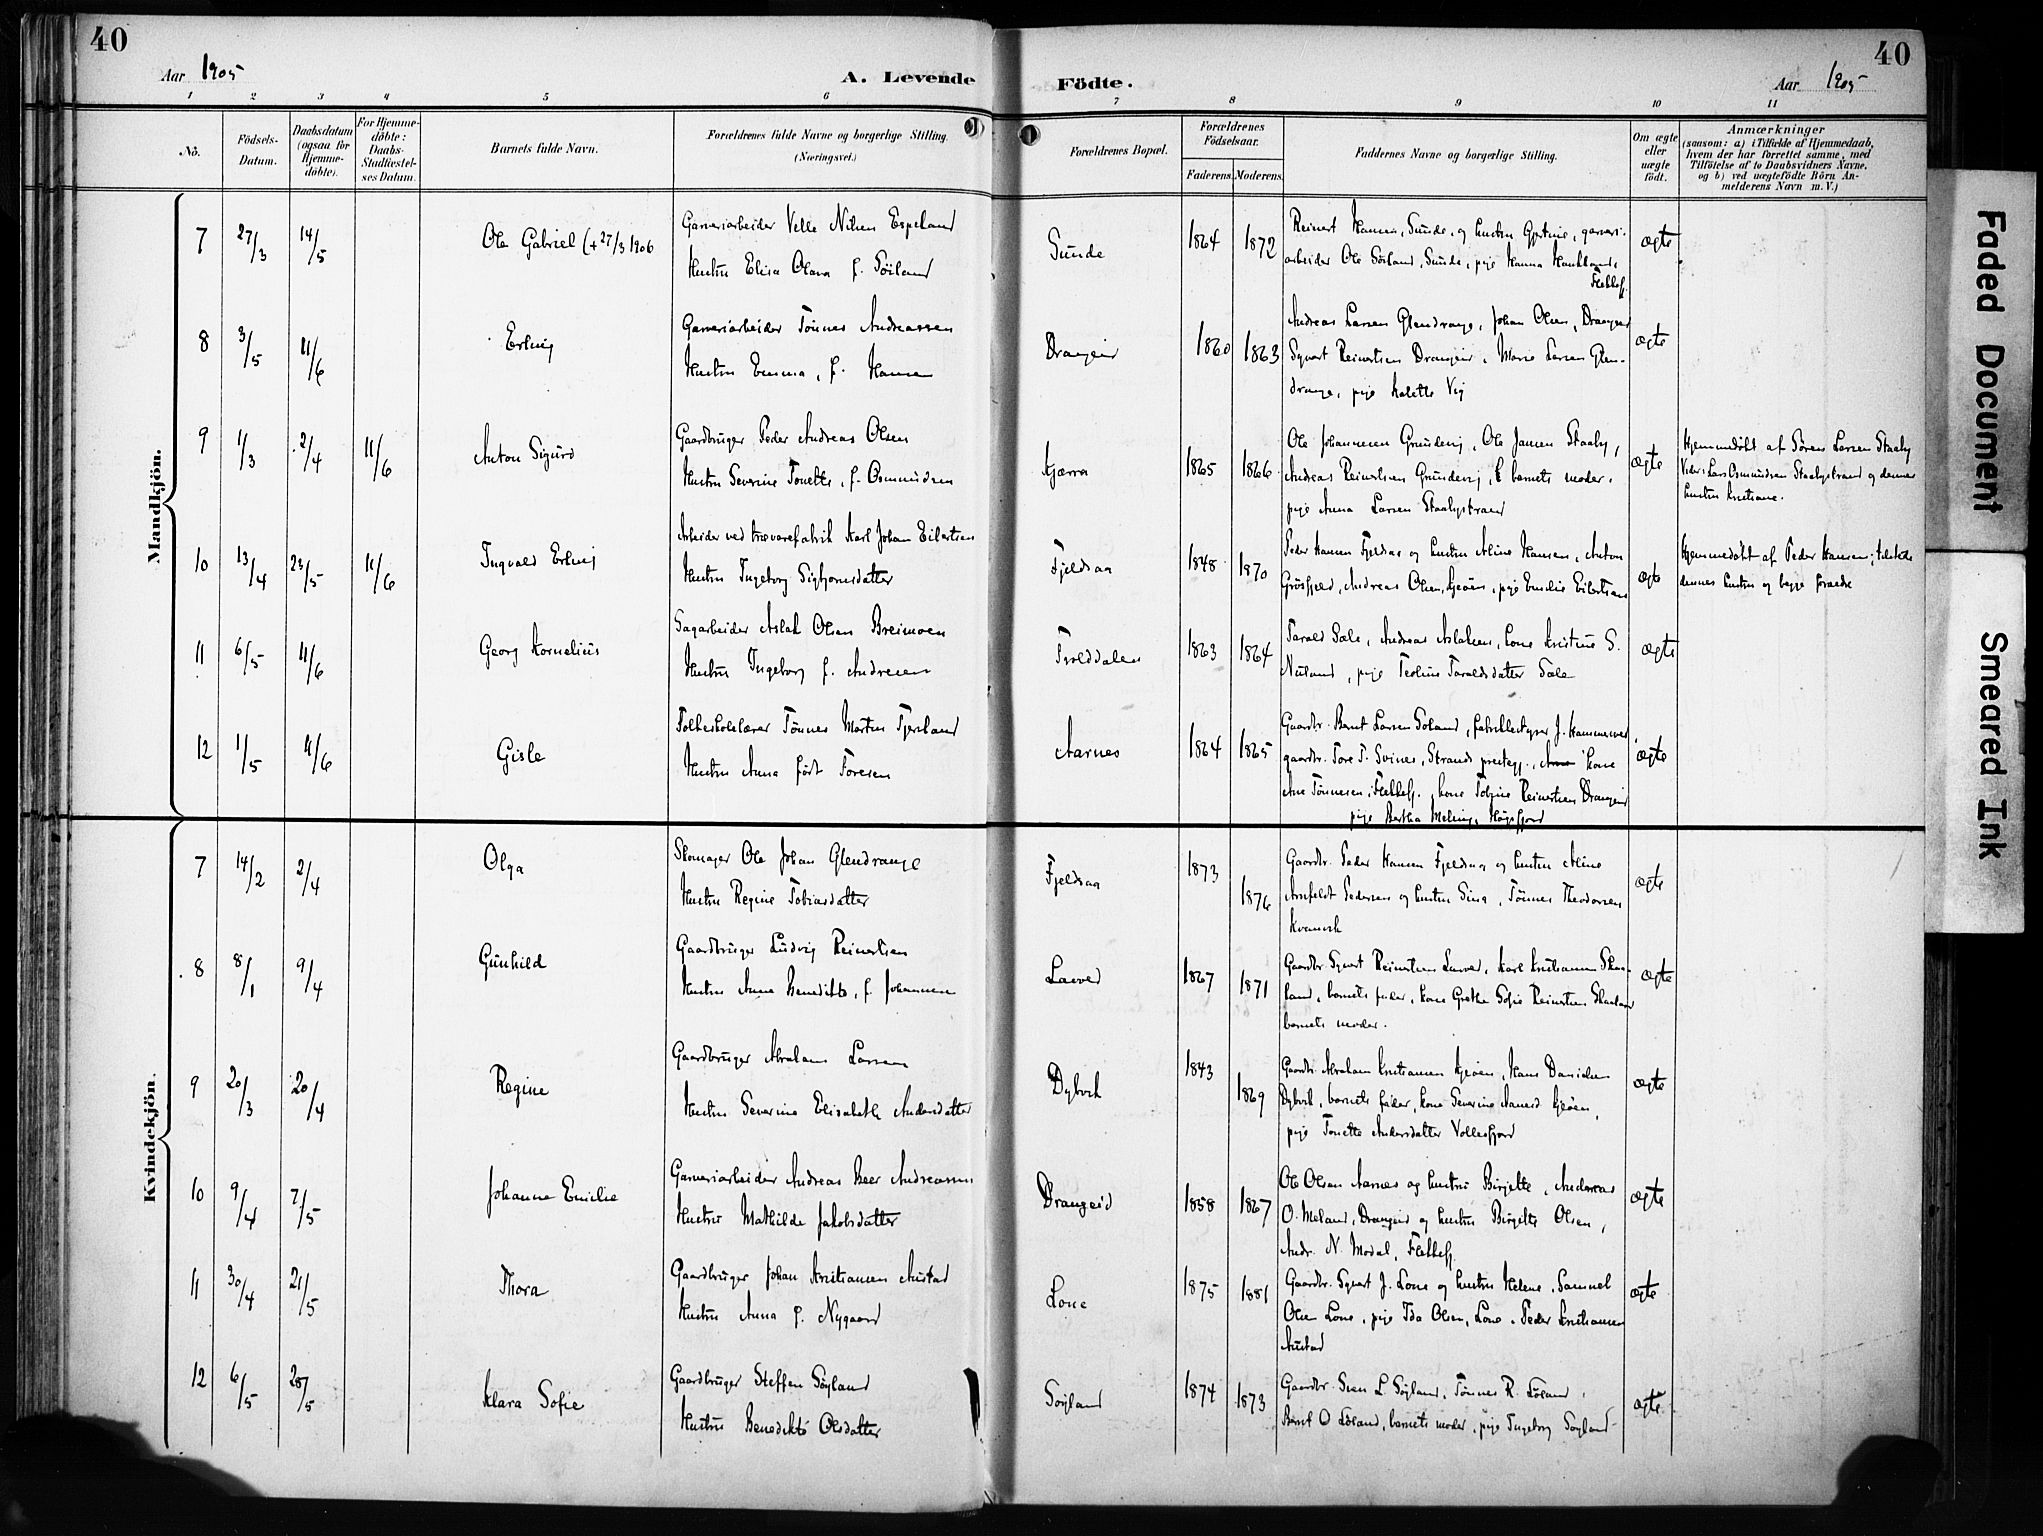 40
Aar 1905
A. Levende
1 2 3 4 5 6
No.
Födsels-
Datum.
Daabsdatum
(ogsaa for
Hjemme-
döbte).
For Hjemme-
döbte:
Daabs-
Stadfæstel-
ses Datum.
Barnets fulde Navn.
Forældrenes fulde Navne og borgerlige Stilling.
(Næringsvei.)
Mandkjön.
7 27/3 14/5 Ole Gabriel (+27/3 1906
Garveriarbeider Velle Nilsen Espeland
Hustru Elisa Olava f. Söiland
8 3/5 11/6 Erling
Garveriarbeider Tönnes Andreassen
Hustru Emma, f. Hansen
9 1/3 2/4 11/6 Anton Sigurd
Gaardbruger Peder Andreas Olsen
Hustru Severine Tonette, f. Osmundsen
10 13/4 23/5 11/6 Ingvald Erling
Arbeider ved trævarefabrik Karl Johan Eilertsen
Hustru Ingeborg Sigbjørnsdatter
11 6/5 11/6 Georg Kornelius
Sagarbeider Aslak Olsen Breimoen
Hustru Ingeborg f. Andresen
12 1/5 11/6 Gisle
Folkeskolelærer Tönnes Martin Fjersland
Hustru Anna född Foresen
Kvindekjön.
7 14/2 2/4 Olga
Skomager Ole Johan Glendrange
Hustru Regine Tobiasdatter
8 8/1 9/4 Gunhild
Gaardbruger Ludvig Reinertsen
Hustru Anna Benedikte, f. Johannesen
9 20/3 20/4 Regine
Gaardbruger Abraham Larsen
Hustru Severine Elisabeth Andersdatter
10 9/4 7/5 Johanne Emilie
Garveriarbeider Andreas Beer Andreassen
Hustru Mathilde Jakobsdatter
11 30/4 21/5 Thora
Gaardbruger Johan Kristiansen Austad
Hustru Anna f. Nygaard
12 6/5 28/5 Klara Sofie
Gaardbruger Steffen Söyland
Hustru Benedikte Olsdatter
40
Födte.
Aar 1905
7 8 9 10 11
Forældrenes Bopæl.
Forældrenes
Födselsaar.
Faderens. Moderens.
Faddernes Navne og borgerlige Stilling.
Om ægte
eller
uægte
födt.
Anmærkninger
(saasom: a) i Tilfælde af Hjemmedaab,
hvem der har forrettet samme, med
Tilföielse af to Daabsvidners Navne,
og b) ved uægtefödte Börn An-
melderens Navn m. V.)
Sunde 1864 1872
Reinert Hansen, Sunde, og hustru garveri-
arbeider Ole Sörland, Sunde, pige Hanna
Flekkefj.
ægte
Drangeid 1860 1863
Andreas Larsen Glendrange, Johan Olsen, Drangeid
Syvert Reinertsen Drangeid, Marie Larsen Glen-
drange, pige
ægte
Kjærra 1865 1866
Ole Johannesen Grundevig, Ole Jansen Staaby,
Andreas Reinertsen Grundevig, barnets moder,
pige Anna Larsen Staabystrand
ægte
Hjemmedöbt af Sören Larsen Staaby
Vidn: Lars Osmundsen Staabystrand og dennes
hustru Kristiane.
Fjeldsaa 1848 1870
Peder Hansen Fjeldsaa og hustru Aline Hansen, Anton
Andreas Olsen, Kjeöen, pige Emilie Eilertsen
ægte
Hjemmedöbt af Peder Hansen; tilstede
dennes hustru og begge foræ
Trolddalen 1863 1864
Tarald Sæle, Andreas Aslaksen, kone Kristine S.
Nuland, pige Teoline Taraldsdatter Sæle
ægte
Aarnes 1864 1865
Gaardbr. Bernt Larsen Soland, fabrikbestyrer J. Hammerner
gaardbr. Tore T. Svines, Strands prestegj., kone
Ane Tönnesen, Flekkefj., kone Reinertsen Drangeid
pige Bertha Meling, Högsfjord
ægte
Fjeldsaa 1873 1876
Gaardbr. Peder Hansen Fjeldsaa og hustru Aline
Arnfeldt Pedersen og hustru Sina, Tönnes Theodorsen
Kvanvik
ægte
Lavved 1867 1871
Gaardbr. Syvert Reinertsen Lavved, Karl Kristiansen Skar-
land, barnets fader, kone Grethe Sofie Reinertsen Skarland
barnets moder.
ægte
Dybvik 1843 1869
Gaardbr. Abraham Kristiansen Kjeöen, Hans Danielsen
Dybvik, barnets fader, kone Severine Aamund Kjeöen,
pige Tonette Andersdatter Vollesfjord
ægte
Drangeid 1858 1867
Ole Olsen Aarnes og hustru Birgitte, Andreas
O. Meland, Drangeid og hustru Birgitte Olsen,
Andr. N. Modal, Flekkefj.
ægte
Lone 1875 1881
Gaardbr. Syvert J. Lone og hustru Helene, Samuel
Olsen Lone, pige Ida Olsen, Lone, Peder Kristiansen
Austad
ægte
Söyland 1874 1873
Gaardbr. Sven L. Söyland, Tönnes R.
Bernt O. barnets moder, pige Ingeborg Söyland
ægte
Faded Document
Smeared Ink